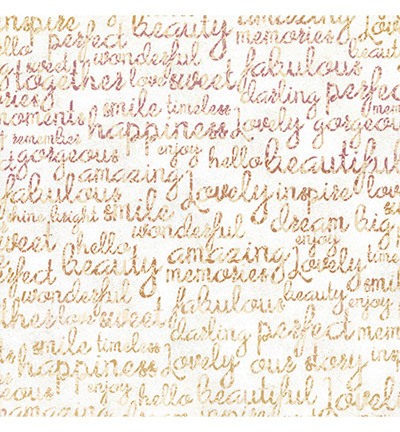 inspire
love beauty lovely
hello perfect memories
sweet wonderful beauty
together love sweet fabulous
darling perfect
moments smile timeless
remember happiness lovely gorgeous
gorgeous enjoy hello beautiful
amazing
fabulous lovely inspire love
shine bright smile
wonderful dream big
sweet hello enjoy
perfect beauty amazing lovely time
memories
wonderful fabulous beauty enjoy
love sweet
darling perfect
smile timeless
happiness lovely our story
enjoy
hello beautiful lovely
amazing